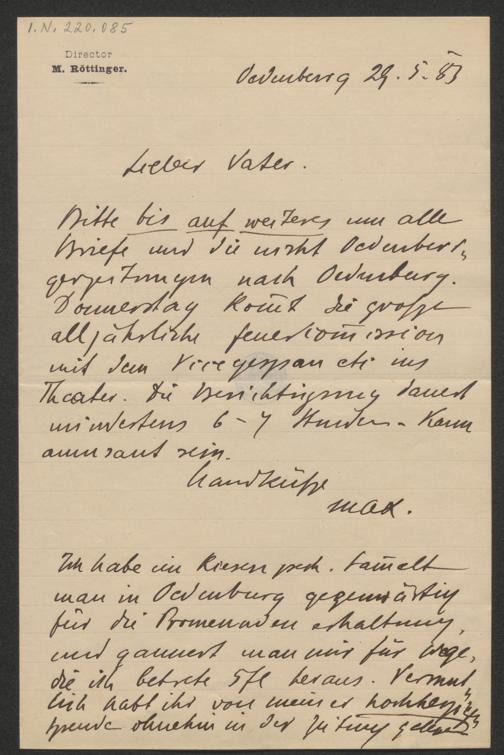 I.N. 220.085
Director
M. Röttinger.
Oedenburg 29. 5. 83
Lieber Vater.
Bitte bis auf weiteres um alle
Briefe und die nicht Oedenbur-
gerzeitungen nach Oedenburg.
Donnerstag kom̄t die große
alljährliche Feuercom̄ission
mit dem Vicegespan etc ins
Theater. Die Besichtigung dauert
mindestens 6 – 7 Stunden. Kann
amusant sein.
Handküße
Max.
Ich habe ein Riesen pech. Sam̄elt
man in Oedenburg gegenwärtig
für die Promenaden erhaltung,
und gaunert man mir für Wege,
die ich betrete 5 fl heraus. Vermut-
lich habt ihr von meiner hochherzigen
Spende ohnehin in der Zeitung gelesen